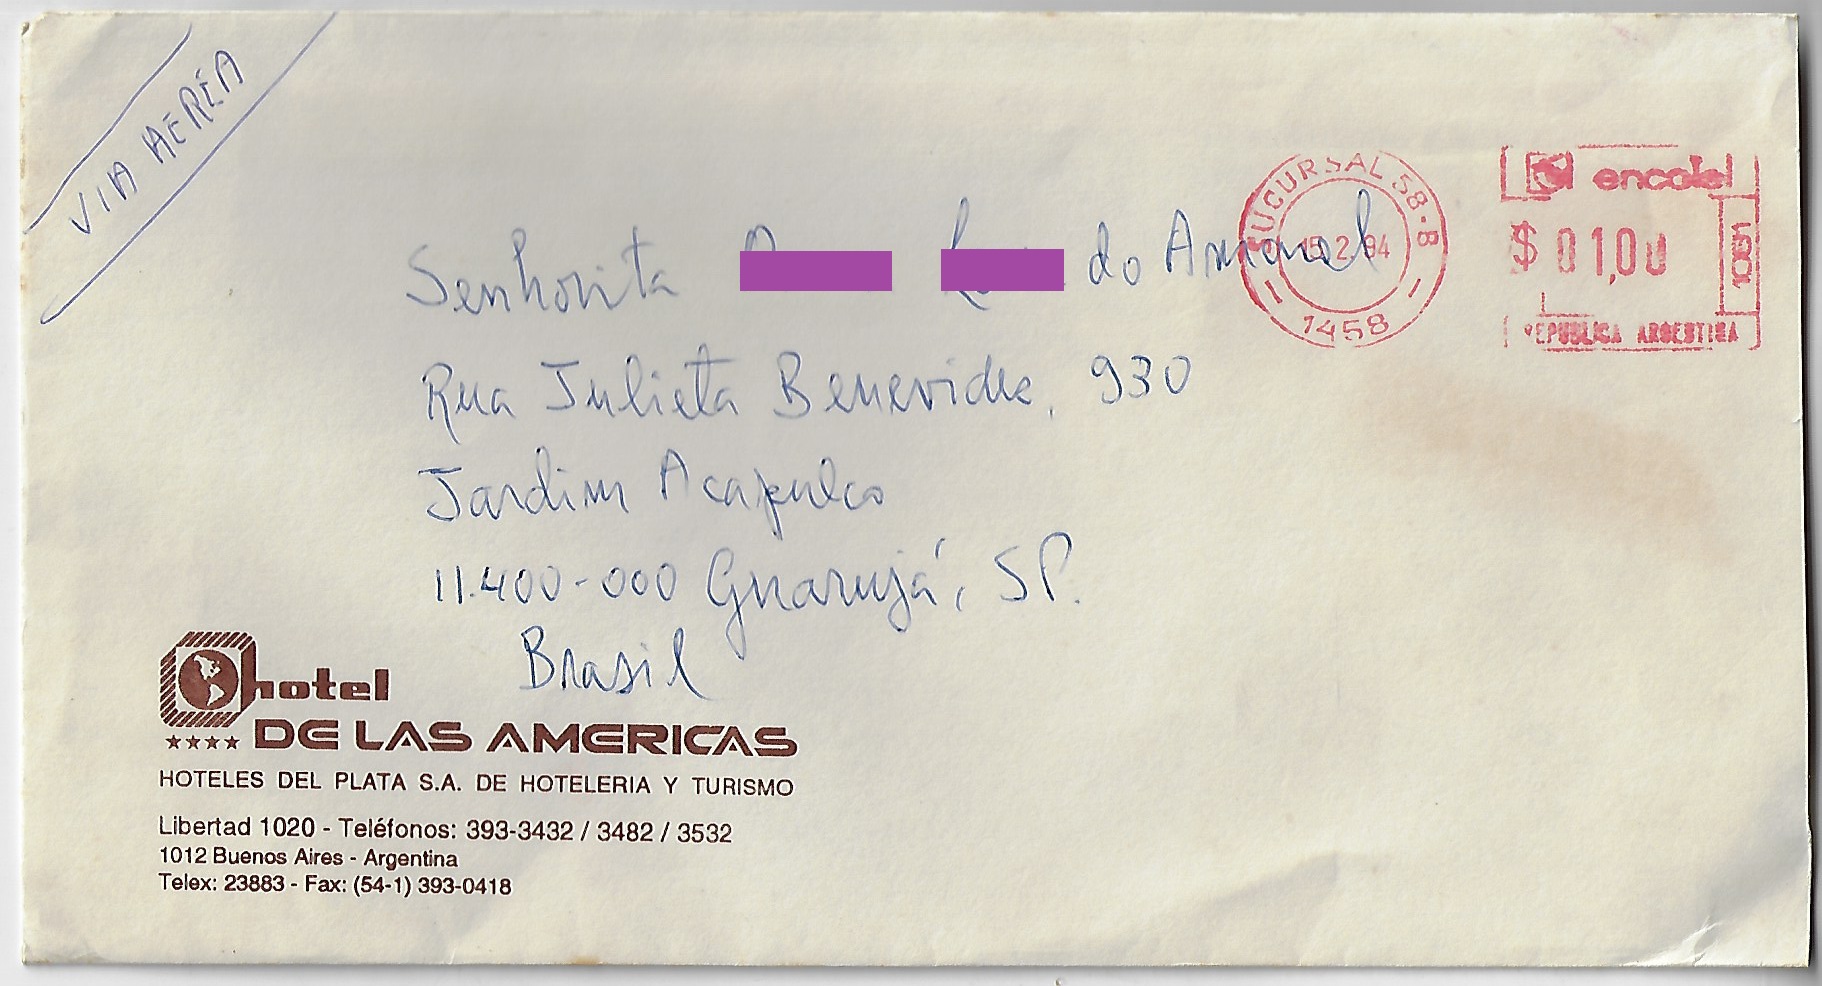 VIA AÉREA
SUCURSAL 58-B
15 2 94
1458
encotel
$ 01,00
REPUBLICA ARGENTINA
Senhorita do Amaral
Rua Julieta Benevides, 930
Jardim Acapulco
11.400-000 Guarujá, SP.
Brasil
hotel
DE LAS AMERICAS
HOTELES DEL PLATA S.A. DE HOTELERIA Y TURISMO
Libertad 1020 - Teléfonos: 393-3432 / 3482 / 3532
1012 Buenos Aires - Argentina
Telex: 23883 - Fax: (54-1) 393-0418